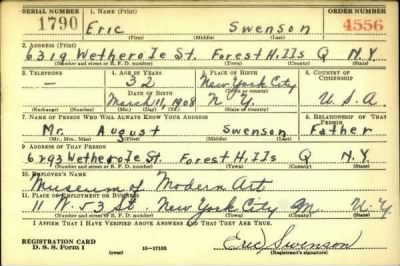 SERIAL NUMBER 1. NAME (Print) ORDER NUMBER
1790 Eric Swenson 4556
(First) (Middle) (Last)
2. ADDRESS (Print)
6319 Wetherole St. Forest Hills Q N.Y.
(Number and street or R. F. D. number) (Town) (County) (State)
3. TELEPHONE 4. AGE IN YEARS 5. PLACE OF BIRTH 6. COUNTRY OF CITIZENSHIP
— 32 New York City
DATE OF BIRTH (Town or county)
March 11, 1908 N. Y. U.S.A
(Exchange) (Number) (Mo.) (Day) (Yr.) (State or country)
7. NAME OF PERSON WHO WILL ALWAYS KNOW YOUR ADDRESS 8. RELATIONSHIP OF THAT PERSON
Mr. August Swenson Father
(Mr., Mrs., Miss) (First) (Middle) (Last)
9. ADDRESS OF THAT PERSON
6293 Wetherole St. Forest Hills Q N.Y.
(Number and street or R. F. D. number) (Town) (County) (State)
10. EMPLOYER'S NAME
Museum of Modern Art
11. PLACE OF EMPLOYMENT OR BUSINESS
11 W. 53 St. New York City M. N.Y.
(Number and street or R. F. D. number) (Town) (County) (State)
I AFFIRM THAT I HAVE VERIFIED ABOVE ANSWERS AND THAT THEY ARE TRUE.
REGISTRATION CARD
D. S. S. Form 1 (over) 16—17105 Eric Swenson
(Registrant's signature)